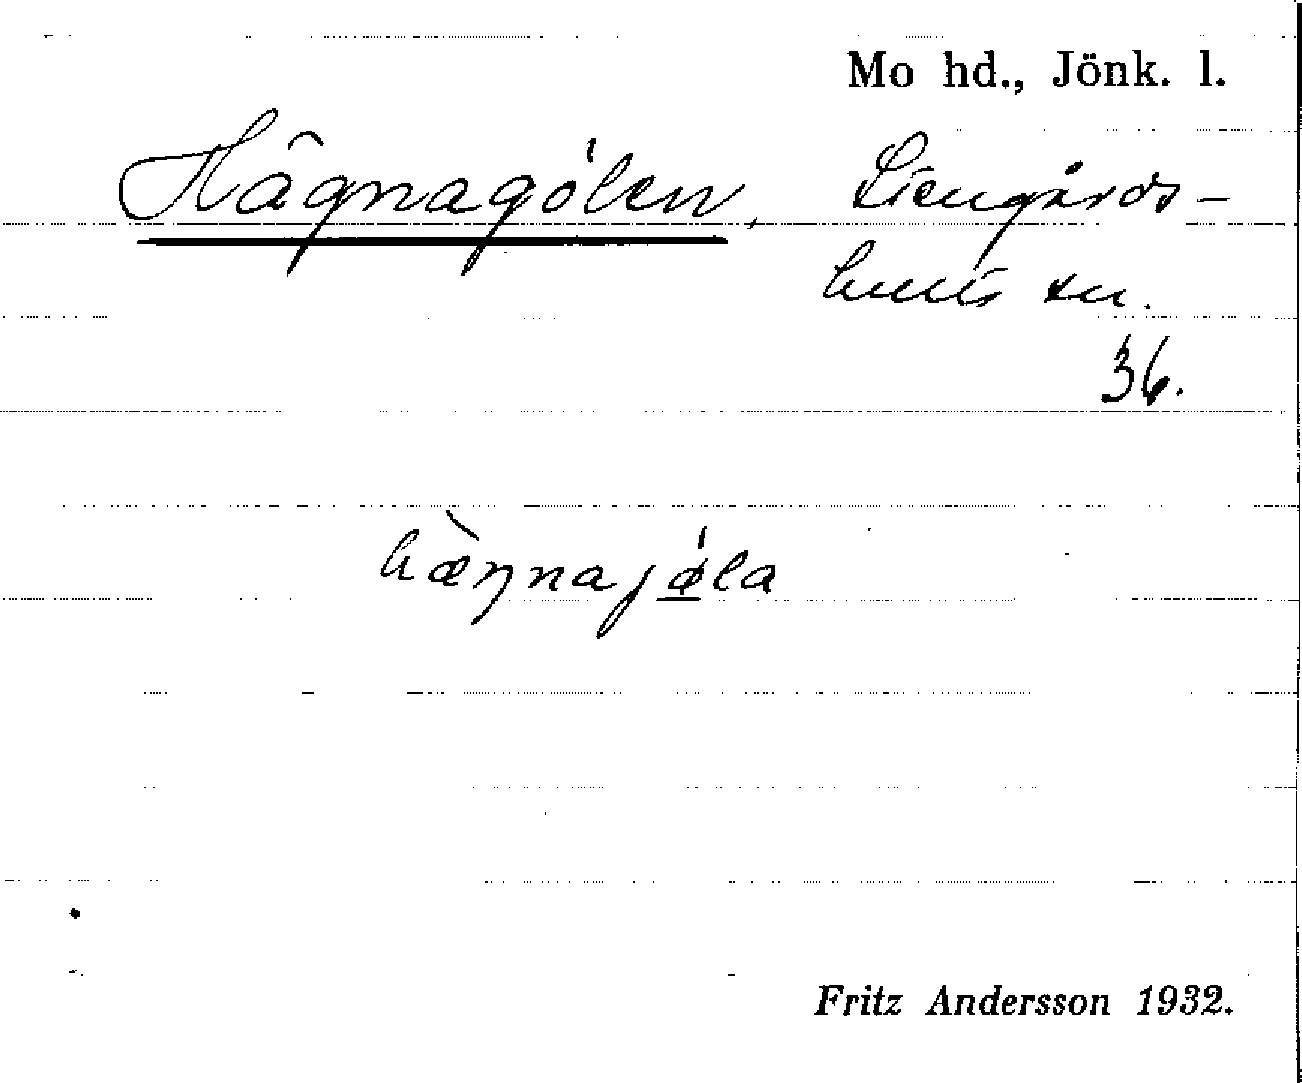 Mo hd., Jönk. l.
Hâgnagólen, Stengårds-
hults sn.
36.
hæ̀ŋnajǿla
Fritz Andersson 1932.